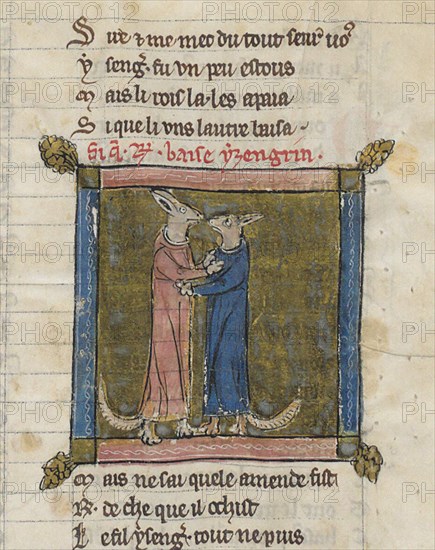 S ire & me met du tout seur uos
Y seng'. fu un peu estous
M ais li rois la. les apaia
S i que li uns lautre baisa.
Si q̃. R. baise yzengrin.
M ais ne sai quele amende fist
R. de che que il ochist
L e fil yseng'. tout ne puis